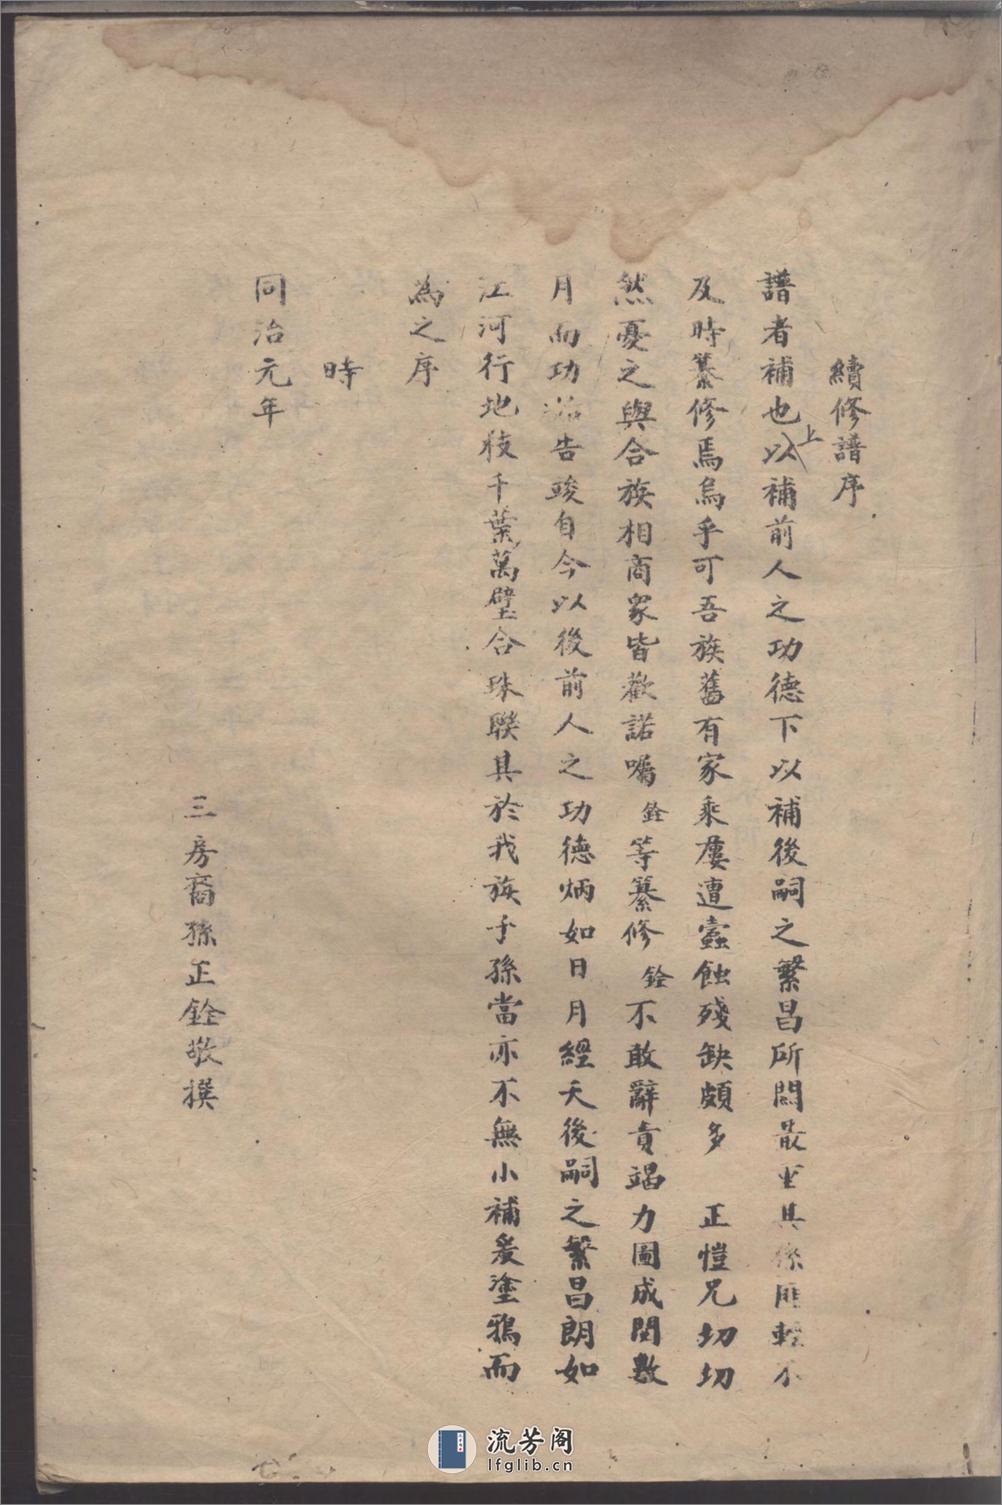 續修譜序
譜者補也上以補前人之功德下以補後嗣之繁昌所關散至其係匪輕不
及時纂修焉烏乎可吾族舊有家乘屢遭蠹蝕殘缺頗多 正愷兄切切
然憂之與合族相商眾皆歡諾囑銓等纂修銓不敢辭責竭力圖成閱數
月而功告竣自今以後前人之功德炳如日月經天後嗣之繁昌朗如
江河行地枝千葉萬璧合珠聯其於我族子孫當亦不無小補爰塗鴉而
為之序
時
同治元年
三房裔孫正銓敬撰
流芳阁
lfglib.cn